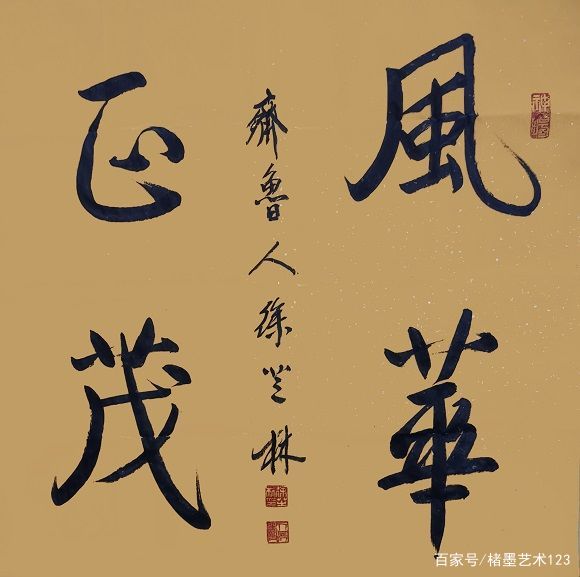 風華
正茂
齊魯人徐芝林
百家号/楮墨艺术123